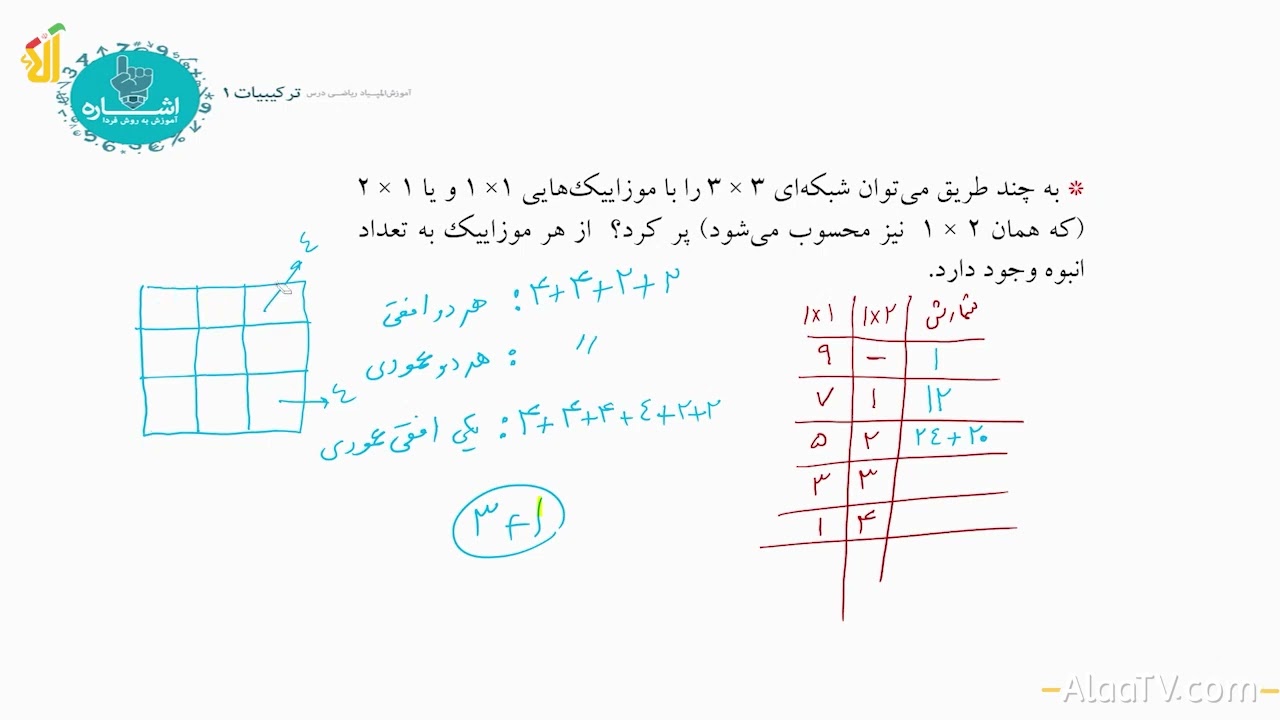 آلاء
اشاره
آموزش به روش فردا
آموزش المپیاد ریاضی درس ترکیبیات ۱
* به چند طریق می‌توان شبکه‌ای ۳ × ۳ را با موزاییک‌هایی ۱ × ۱ و یا ۱ × ۲
(که همان ۲ × ۱ نیز محسوب می‌شود) پر کرد؟ از هر موزاییک به تعداد
انبوه وجود دارد.
هر دو افقی : ۴+۴+۲+۲
هر دو عمودی : //
یکی افقی عمودی : ۴+۴+۴+٤+۲+۲
٤
٤
۱x۱ ۱x۲ شمارش
۹ – ۱
۷ ۱ ۱۲
۵ ۲ ۲٤+۲۰
۳ ۳
۱ ۴
AlaaTV.com